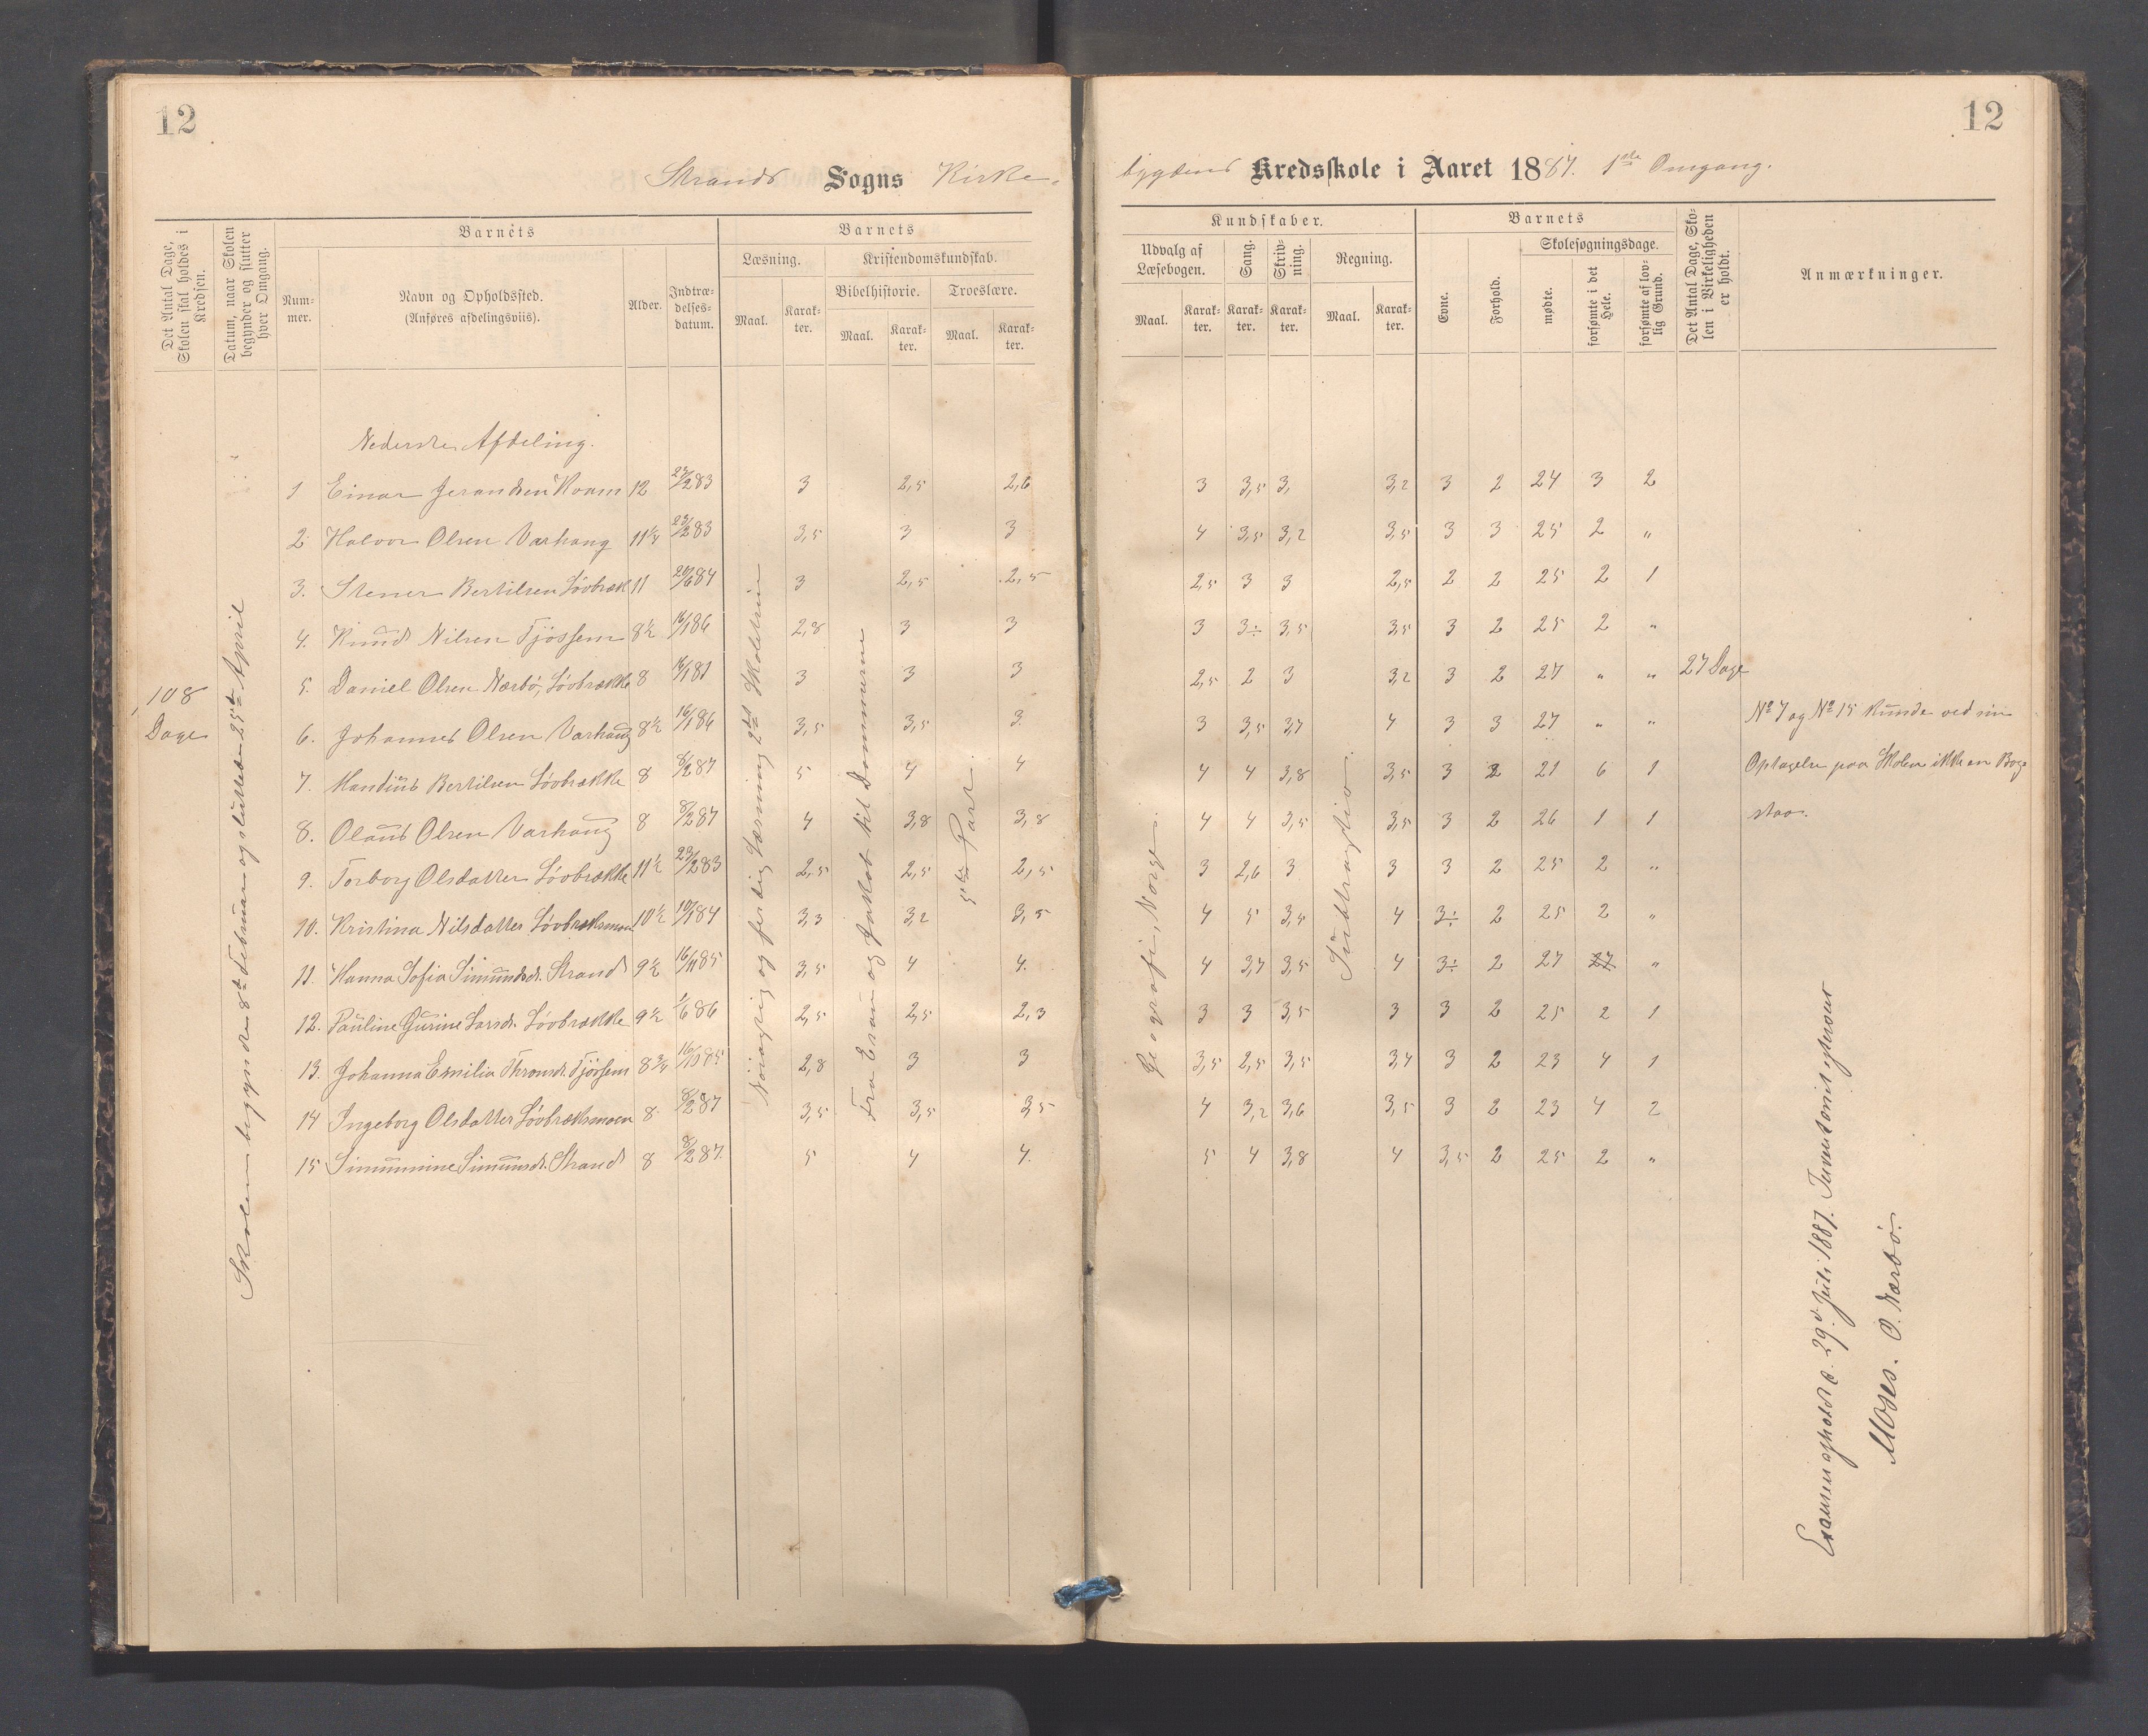 12
Strands Sogns Kirke-
Det Antal Dage, Skolen skal holdes i Kredsen.
Datum, naar Skolen begynder og slutter hver Omgang.
Barnets
Num-mer.
Navn og Opholdssted.
(Anføres afdelingsviis).
Alder.
Indtræ-delses-datum.
Barnets
Læsning.
Kristendomskundskab.
Bibelhistorie.
Troeslære.
Maal. Karak-ter. Maal. Karak-ter. Maal. Karak-ter.
108 Dage
Skolen begyndte 8de Februar og sluttede 25de April
Nøiagtig og ferdig Læsning 2det Skoletrin
Fra Esau og Jakob til Dommerne
5te Part.
Nederste Afdeling.
1 Einar 12 23/283 3 2,5 2,6
2 Halvor Olsen Varhaug 11 1/4 23/283 3,5 3 3
3. Stener Bertilsen Løvbræk 11 84 3 2,5 2,5
4. Knud Nilsen Tjøssem 8 1/2 16/186 2,8 3 3
5. Daniel Olsen Nærbø, Løvbrække 8 3 3 3
6. Johannes Olsen Varhaug 8 1/2 16/186 3,5 3,5 3
7. Bertilsen Løvbrække 8 8/287 5 4 4
8. Olaus Olsen Varhaug 8 8/287 4 3,8 3,8
9. Torborg Olsdatter Løvbrække 11 1/2 23/283 2,5 2,5 2,5
10. Kristina Nilsdatter Løvbræksmoen 10 1/2 84 3,3 3,2 3,5
11. Hanna Sofia Simundsd. Strand 9 1/2 16/1185 3,5 4 4
12. Pauline Gurine Larsd. Løvbrække 9 1/2 1/686 2,5 2,5 2,3
13. Johanna Emilia Tjøssem 8 3/4 85 2,8 3 3
14 Ingeborg Olsdatter Løvbræksmoen 8 8/287 3,5 3,5 3,5
15 Simunnine Simunsd. Strand 8 8/287. 5 4 4.
12
bygdens Kredsskole i Aaret 1887. 1ste Omgang.
Kundskaber.
Udvalg af Læsebogen.
Sang.
Skriv-ning.
Regning.
Maal. Karak-ter. Karak-ter. Karak-ter. Maal. Karak-ter.
Barnets
Evne.
Forhold.
Skolesøgningsdage.
mødte.
forsømte i det Hele.
forsømte af lov-lig Grund.
Det Antal Dage, Sko-len i Virkeligheden er holdt.
Anmærkninger.
Geografi, Norge.
Subtraktion.
3 3,5 3, 3,2 3 2 24 3 2
4 3,5 3,2 3,5 3 3 25 2 „
2,5 3 3 2,5 2 2 25 2 1
3 3÷ 3,5 3,5 3 2 25 2 „
2,5 2 3 3,2 3 2 27 „ „ 27 Dage
3 3,5 3,7 4 3 3 27 „ „
4 4 3,8 3,5 3 2 21 6 1
4 4 3,5 3,5 3 2 26 1 1
3 2,6 3 3 3 2 25 2 „
4 5 3,5 4 3÷ 2 25 2 „
4 3,7 3,5 4 3÷ 2 27 27 „
3 3 3,5 3 3 2 25 2 1
3,5 2,5 3,5 3,4 3 2 23 4 1
4 3,2 3,6 3,5 3 2 23 4 2
5 4 3,8 4 3,5 2 25 2 „
No 7 og No 15 kunde ved sin
Optagelse paa Skolen ikke en Bog-
stav.
Examen afholdt d. 29d Juli 1887. Inventariet efterseet
Moses. O. Nærbø.